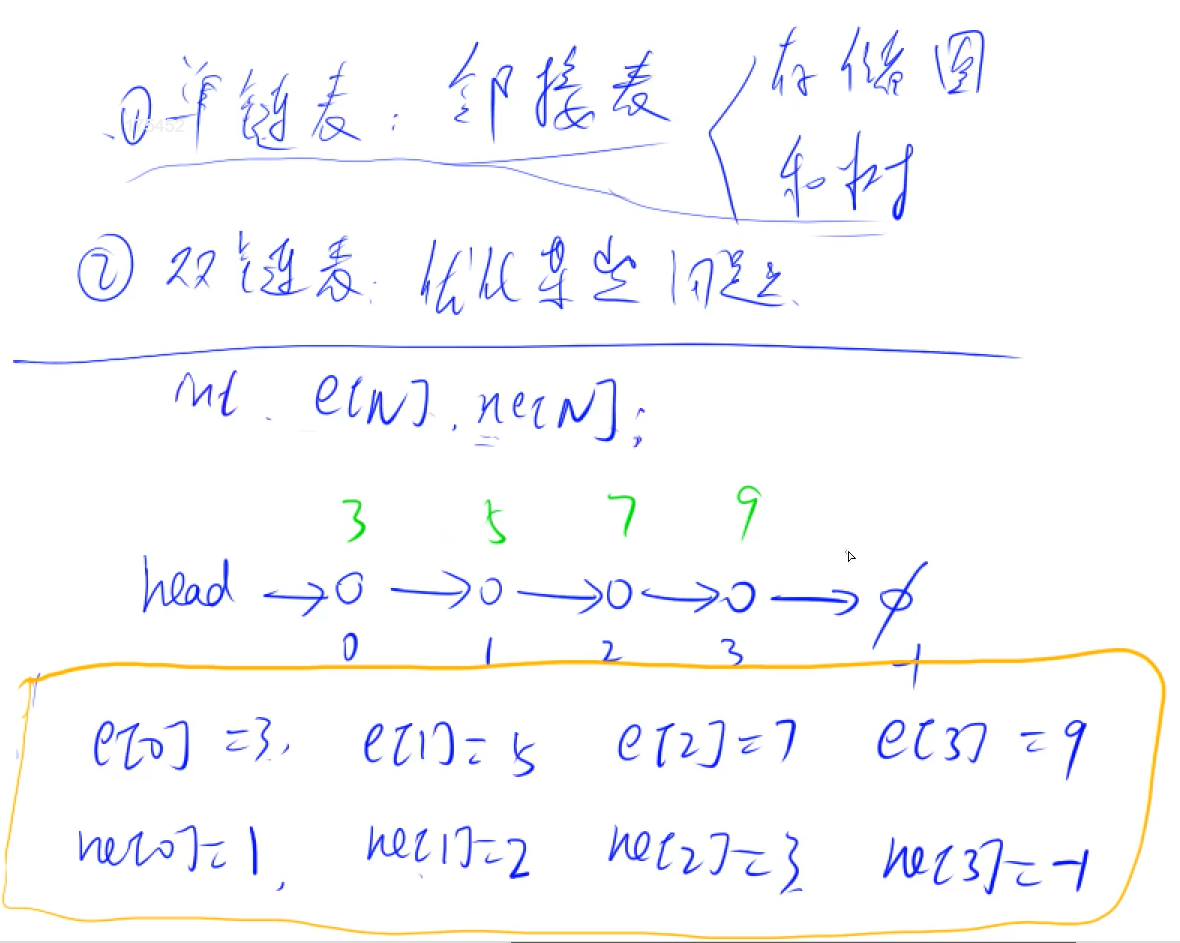 ①单链表：邻接表 存储图
和树
②双链表：优化某些问题
int e[N], ne[N];
3 5 7 9
head → O → O → O → O → ∅
0 1 2 3 -1
e[0]=3, e[1]=5 e[2]=7 e[3]=9
ne[0]=1, ne[1]=2 ne[2]=3 ne[3]=-1